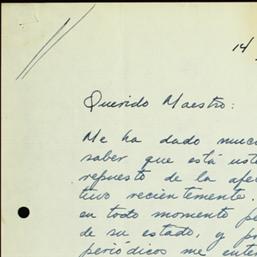 14
Querido Maestro:
Me ha dado
saber que está
repuesto de la
tivo recientemente.
en todo momento
de su estado, y
periódicos me